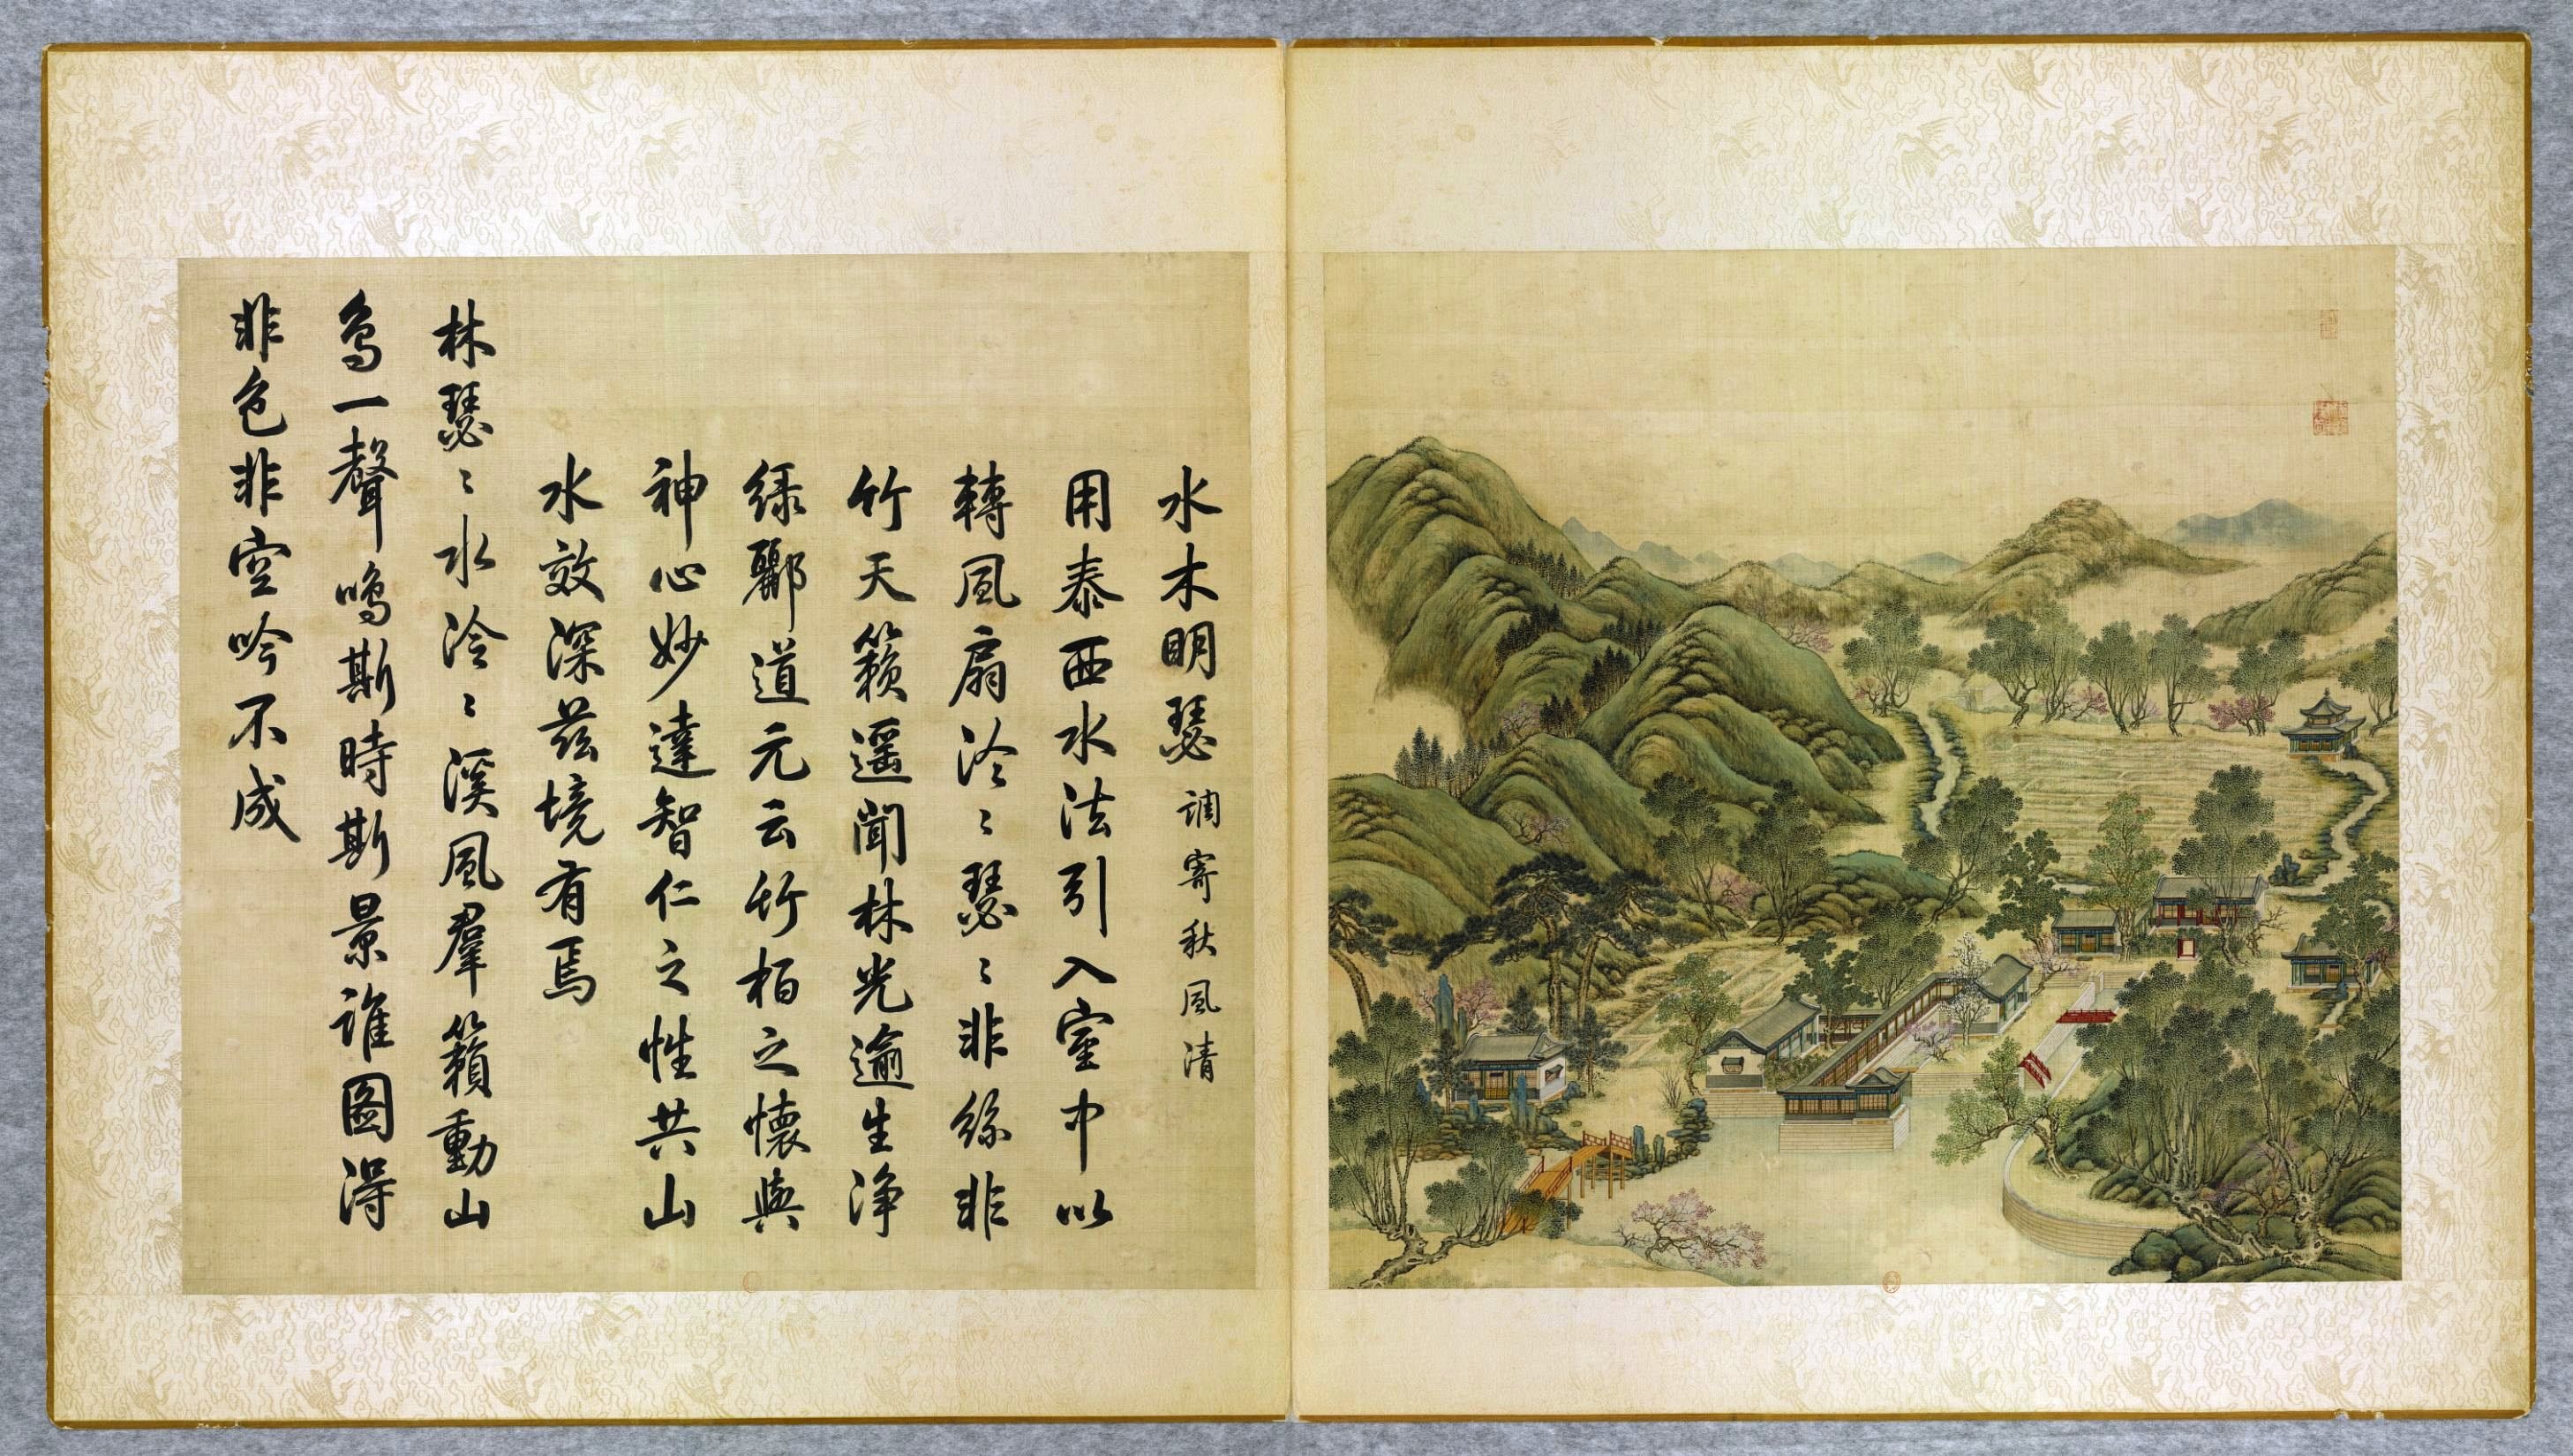 水木明瑟 調寄秋風清
用泰西水法引入室中以
轉風扇泠〻瑟〻非絲非
竹天籟遥聞林光逾生浄
緑酈道元云竹柏之懷與
神心妙達智仁之性共山
水效深兹境有焉
林瑟〻水泠〻溪風羣籟動山
鳥一聲鳴斯時斯景誰圖得
非色非空吟不成